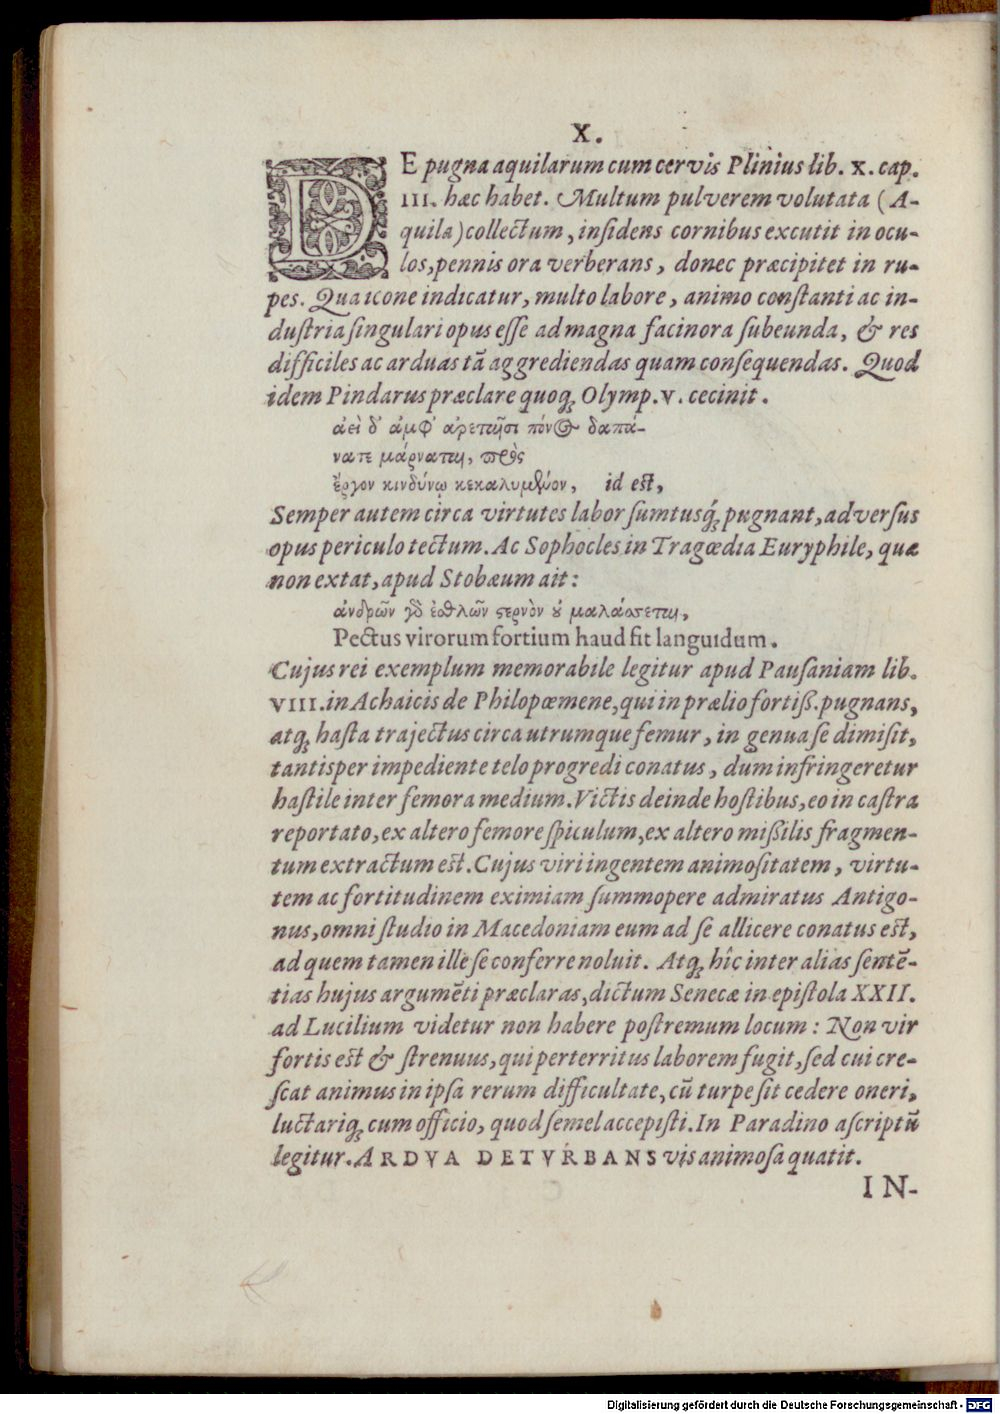 X.
DE pugna aquilarum cum cervis Plinius lib. X. cap.
III. hæc habet. Multum pulverem volutata (A-
quila) collectum, insidens cornibus excutit in ocu-
los, pennis ora verberans, donec præcipitet in ru-
pes. Qua icone indicatur, multo labore, animo constanti ac in-
dustria singulari opus esse ad magna facinora subeunda, & res
difficiles ac arduas tã aggrediendas quam consequendas. Quod
idem Pindarus præclare quoq; Olymp. V. cecinit.
ἀεὶ δ' ἀμφ' ἀρετῆσι πόνος δαπά-
νατε μάρναται, πρὸς
ἔργον κινδύνῳ κεκαλυμμένον, id est,
Semper autem circa virtutes labor sumtusq́; pugnant, adversus
opus periculo tectum. Ac Sophocles in Tragœdia Euryphile, quæ
non extat, apud Stobæum ait:
ἀνδρῶν γὸ ἐσθλῶν στερνὸν ȣ μαλάσσεται,
Pectus virorum fortium haud fit languidum.
Cujus rei exemplum memorabile legitur apud Pausaniam lib.
VIII. in Achaicis de Philopœmene, qui in prælio fortiß. pugnans,
atq; hasta trajectus circa utrumque femur, in genua se dimisit,
tantisper impediente telo progredi conatus, dum infringeretur
hastile inter femora medium. Victis deinde hostibus, eo in castra
reportato, ex altero femore spiculum, ex altero mißilis fragmen-
tum extractum est. Cujus viri ingentem animositatem, virtu-
tem ac fortitudinem eximiam summopere admiratus Antigo-
nus, omni studio in Macedoniam eum ad se allicere conatus est,
ad quem tamen ille se conferre noluit. Atq; hîc inter alias sentẽ-
tias hujus argumẽti præclaras, dictum Senecæ in epistola XXII.
ad Lucilium videtur non habere postremum locum: Non vir
fortis est & strenuus, qui perterritus laborem fugit, sed cui cre-
scat animus in ipsa rerum difficultate, cũ turpe sit cedere oneri,
luctariq; cum officio, quod semel accepisti. In Paradino ascriptũ
legitur. ARDVA DETVRBANS vis animosa quatit.
IN-
Digitalisierung gefördert durch die Deutsche Forschungsgemeinschaft - DFG